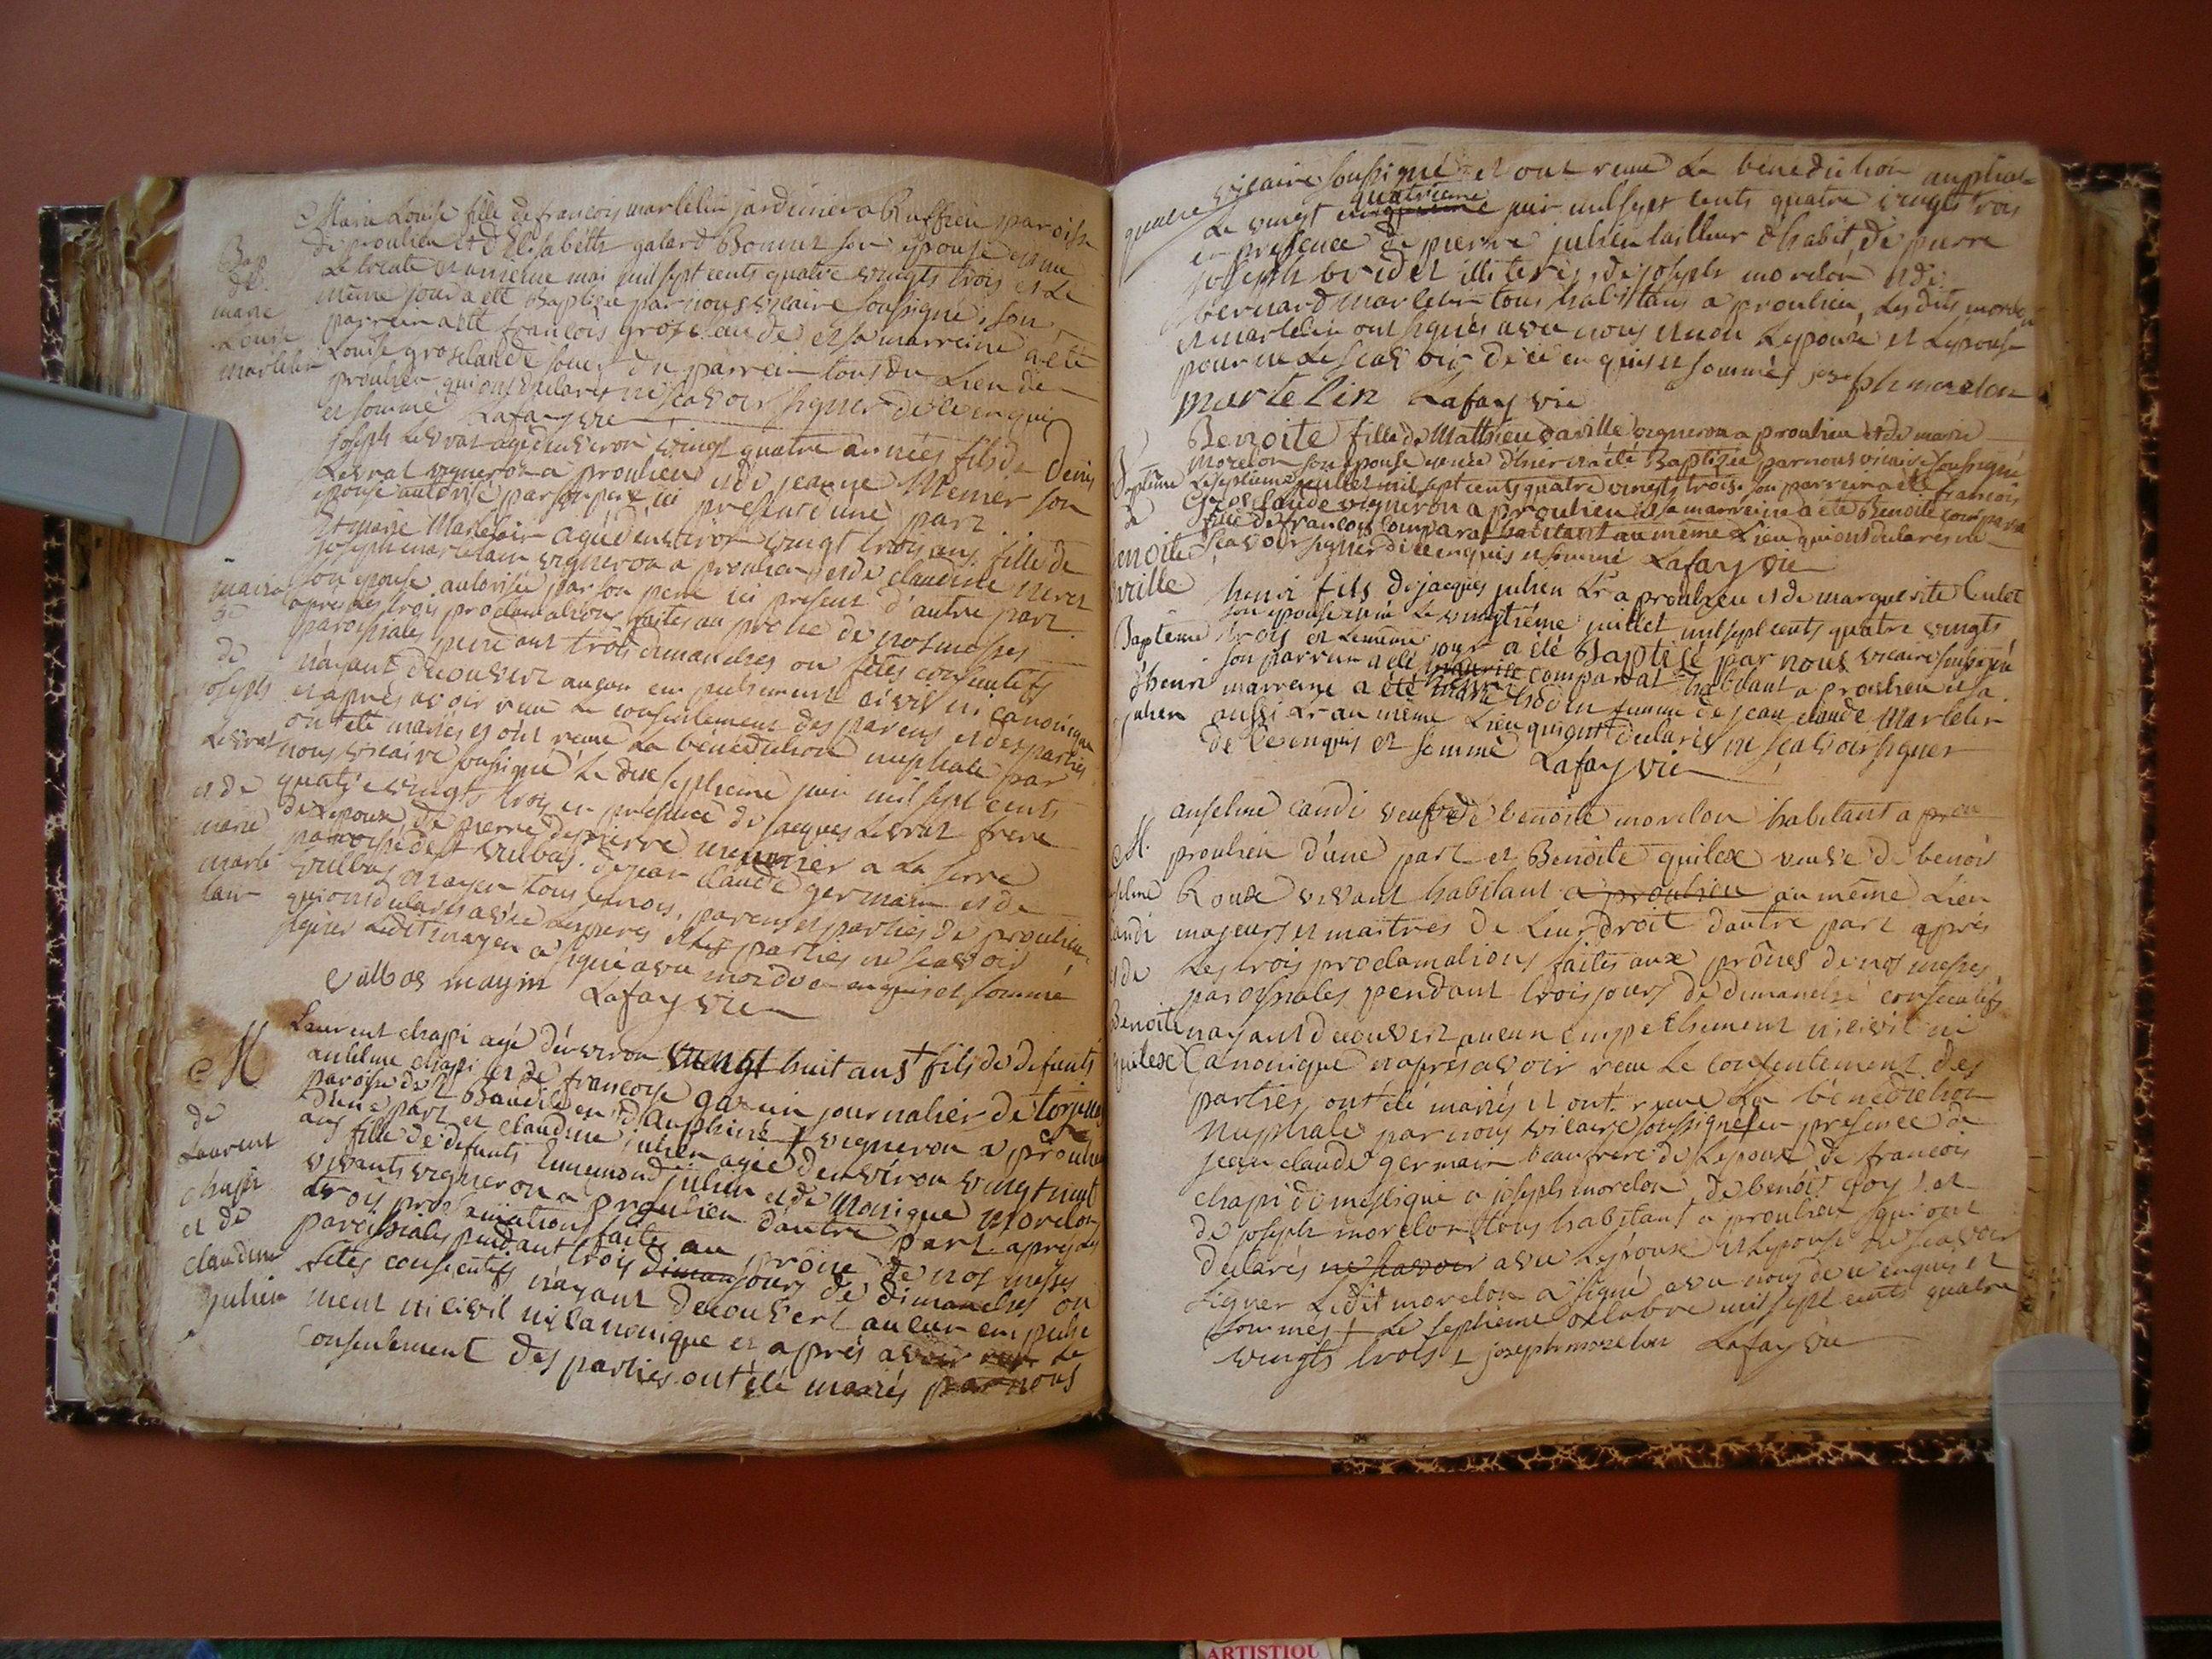 Maria Louise fille de francois martelin jardinier a Ruffieu paroisse
de proulieu et d'Elisabeth galard Bonnet son epouse est née
Le trente et unieme mai mil sept cents quatre vingts trois et Le
même jour a eté Baptisée par nous vicaire soussigné, son
parrein a eté francois groseclaude et sa marreine a eté
Louise groslaude soeur du parrein tous du Lieu de
proulieu qui ont declarés ne scavoir signer de ce enquis
et sommé Lafay vic
Bap
de
marie
Louise
martelin
joseph Levrat agé denviron vingt quatre années fils de Denis
Levrat vigneron a proulieu et de jeanne Menier son
epouse autorisé par son pere ici present d'une part
et marie Martelain agée denviron vingt trois ans fille de
joseph martelain vigneron a proulieu et de claudine neret
son epouse autorisée par son pere ici present d'autre part
apres Les trois proclamations faites au prone de nos messes
paroissiales pendant trois dimanches ou fêtes consecutifs
n'ayant decouvert aucun empechement civil ni canonique
et aprés avoir reçu Le consentement des parens et des parties
ont eté mariés et ont recue La bénédiction nuptiale par
nous vicaire soussigné Le dix septieme juin mil sept cents
quatre vingts trois en presence de jacques Levrat frere
de Lepoux de pierre depierre meunier a La serre
paroisse de st vulbas. de jean claude germain et de
vulbas mayen tous temois, parens et parties de proulieu
qui ont declarés avec Les peres et Les parties ne scavoir
signer Ledit mayen a signé avec moi de ce enquis et sommé
vulbas mayin Lafay vic
maria
de
joseph
Levrat
et de
marie
marte
lain
Laurent chapi agé dénviron vingt huit ans + fils de défunts
anselme chapi et de francoise gazein journalier de torjeux
paroise de st Baudile en dauphiné + vigneron a proulieu
d'une part et claudine julien agée denviron vingt sept
ans fille de defunts Ennemond julien et de Monique Morelon
vivants vigneron a proulieu dautre part. aprés Les
trois proclamations faites au prône de nos messes
paroissiales pendant trois diman jours de dimanches ou
fêtes consecutifs n'ayant decouvert aucun empeche
ment ni civil ni canonique et aprés avoir reçu Le
consentement des parties ont été mariés par nous
M
de
Laurent
chapi
et de
claudine
julien
vicaire soussigné et ont recue La bénédiction nuptiale
quatrieme
Le vingt cinquieme juin mil sept cents quatre vingts trois
en presence de pierre julien tailleur d'habit, de pierre
joseph bridet illiterés, de joseph morelon et de
bernard martelin tous habitans a proulieu, Les dits morelon
et martelin ont signés avec nous et non Lepoux et Lepouse
pour ne Le scavoir de ce enquis et sommés joseph morelon
martelin Lafay vic
Benoite fille de Matthieu daville vigneron a proulieu et de marie
Morelon son epouse venue d'hier a été Baptisée par nous vicaire soussigné
Le septieme juillet mil sept cents quatre vingts trois. son parrein a eté francois
Groslaude vigneron a proulieu et sa marreine a eté Benoite comparat
fille de francois comparat habitant au même Lieu qui ont declarés ne
scavoir signer de ce enquis et sommé Lafay vic
Baptême
de
benoite
daville
henri fils de jacques julien Lr a proulieu et de marguerite Centet
son epouse né Le vingtiéme juillet mil sept cents quatre vingts
trois et Lemême jour a été Baptisé par nous vicaire soussigné
son parrein a été comparat habitant a proulieu et sa
marreine a été marie hodin femme de jean claude Martelin
aussi Lr au même Lieu qui ont declarés ne scavoir signer
de ce enquis et sommé Lafay vic
Baptême
d'henri
julien
anselme candi veuf de benoite morelon habitant a prou
proulieu d'une part et Benoite quilex veuve de benois
Roux vivant habitant a proulieu au même Lieu
majeurs et maitres de Leur droit dautre part aprés
Les trois proclamations faites aux prônes de nos messes
paroissiales pendant trois jours de dimanche consecutifs
n'ayant decouvert aucun empechement ni civil ni
Canonique et aprés avoir recu Le consentement des
parties ont été mariés et ont recue La bénédiction
Nuptiale par nous vicaire soussigné en presence de
jean claude germain beaufrere de Lepoux de francois
chapi domestique a joseph morelon de benoit goy et
de joseph morelon tous habitant a proulieu qui ont
declarés ne scavoir avec Lépoux et Lepouse ne scavoir
signer Ledit morelon a signé avec nous de ce enquis et
sommés + Le septieme octobre mil sept cents quatre
vingts trois + joseph morelon Lafay vic
M.
anselme
Candi
et de
Benoite
quilex
ARTISTIQU